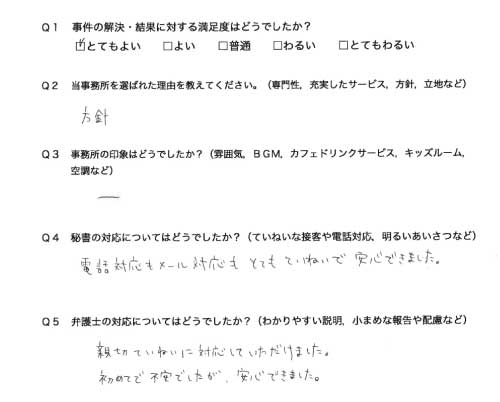 Q1 事件の解決・結果に対する満足度はどうでしたか?
☑とてもよい □よい □普通 □わるい □とてもわるい
Q2 当事務所を選ばれた理由を教えてください。(専門性，充実したサービス，方針，立地など)
方針
Q3 事務所の印象はどうでしたか?(雰囲気，BGM，カフェドリンクサービス，キッズルーム，
空調など)
—
Q4 秘書の対応についてはどうでしたか?(ていねいな接客や電話対応，明るいあいさつなど)
電話対応もメール対応もとてもていねいで安心できました。
Q5 弁護士の対応についてはどうでしたか?(わかりやすい説明，小まめな報告や配慮など)
親切ていねいに対応していただけました。
初めてで不安でしたが、安心できました。